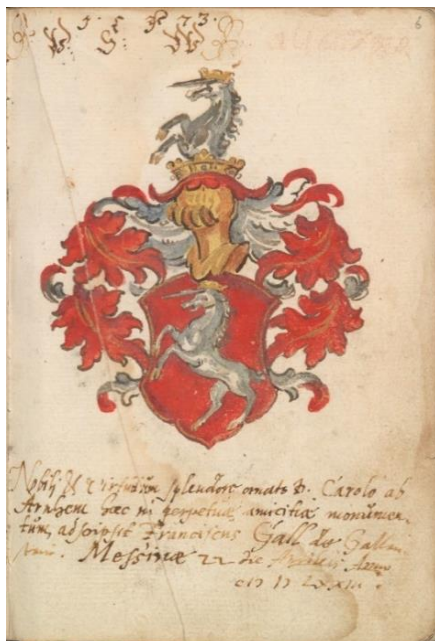 1573.
6
W S W
Nobili et virtutum splendore ornato D. Carolo ab
Arnhem hæc in perpetuæ amicitiæ monumen-
tum, adscripsit Franciscus Gall de Gallen
Messinæ 22 die Aprilis Anno